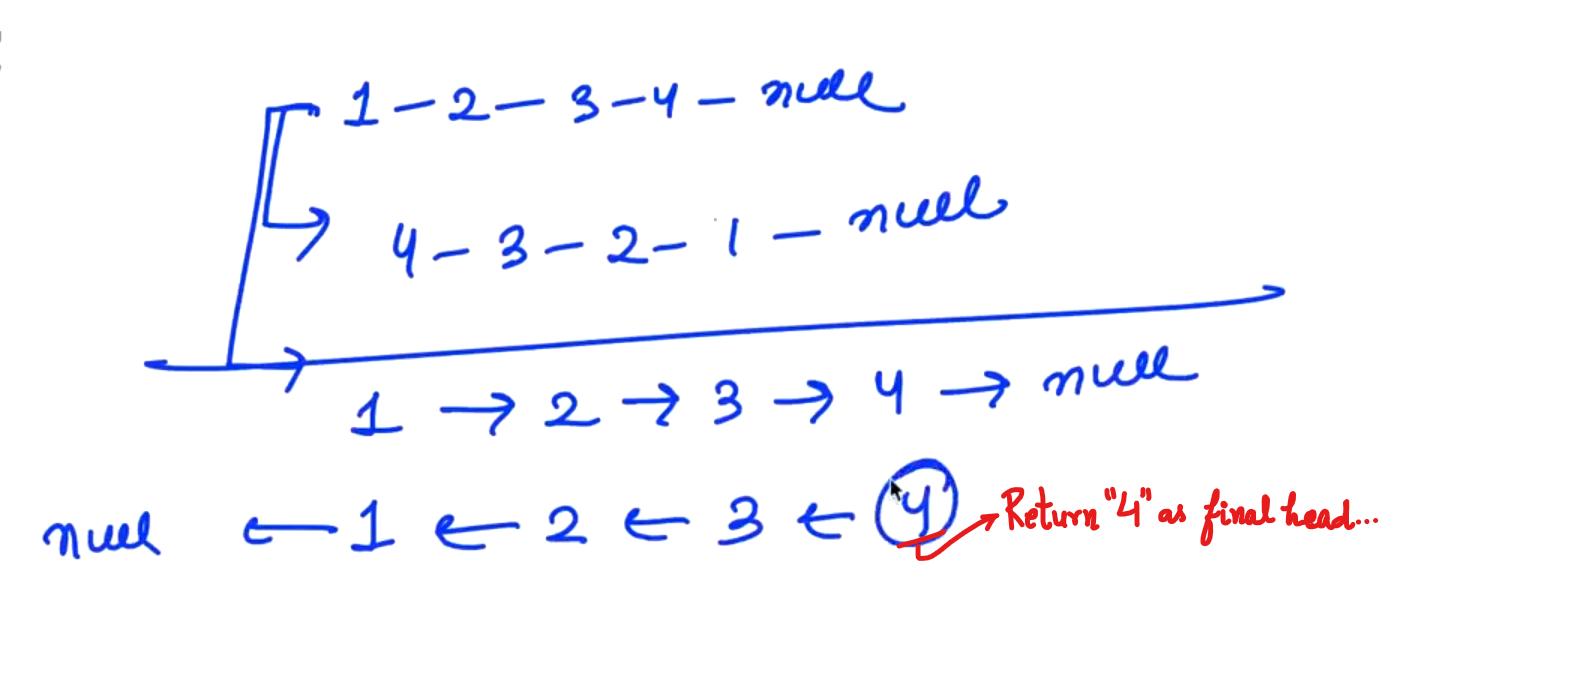 1 - 2 - 3 - 4 - null
4 - 3 - 2 - 1 - null
1 → 2 → 3 → 4 → null
null ← 1 ← 2 ← 3 ← 4 → Return "4" as final head...